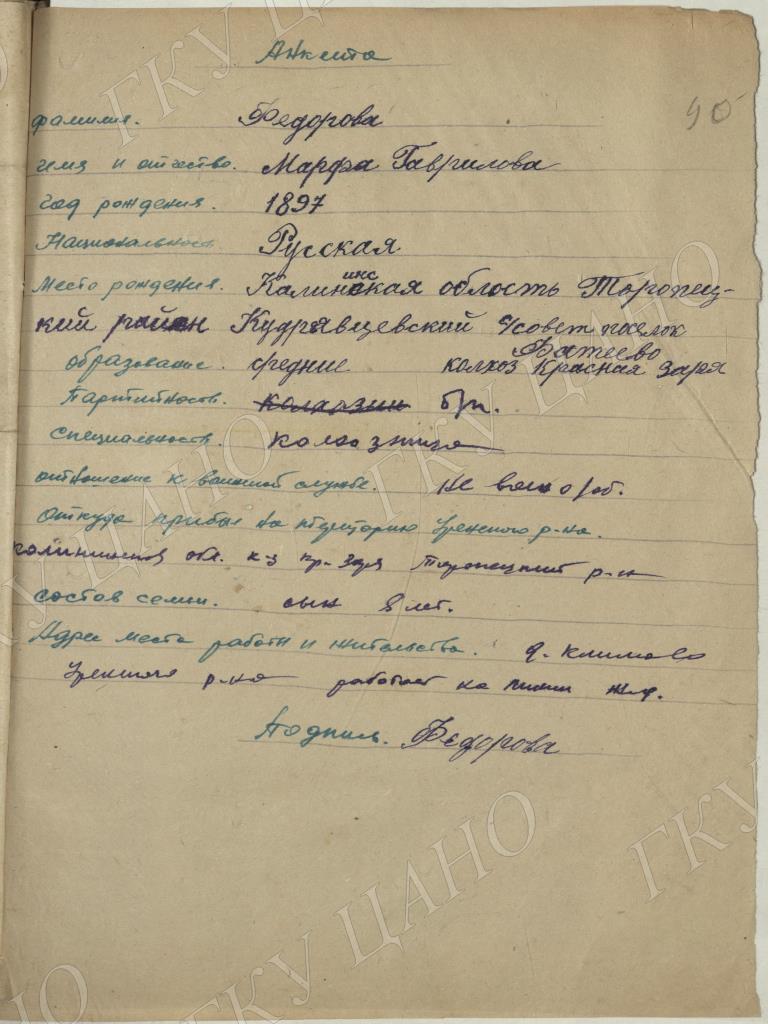 Анкета
90
фамилия. Федорова
имя и отчество. Марфа Гаврилова
год рождения. 1897
Национальность Русская
Место рождения. Калининская область Торопец-
кий район Кудрявцевский с/совет поселок
Фатеево
образование. средние. колхоз Красная Заря
Партийность. б/п.
Специальность. колхозница
отношение к военной службе. не военнооб.
Откуда прибыл на територию Уренского р-на.
калининская обл. к-з кр-Заря Торопецкий р-н
состав семьи. сын 8 лет.
Адрес места работы и жительства. д. климово
Уренского р-на работает на линии ж.д.
Подпись. Федорова
ГКУ ЦАНО